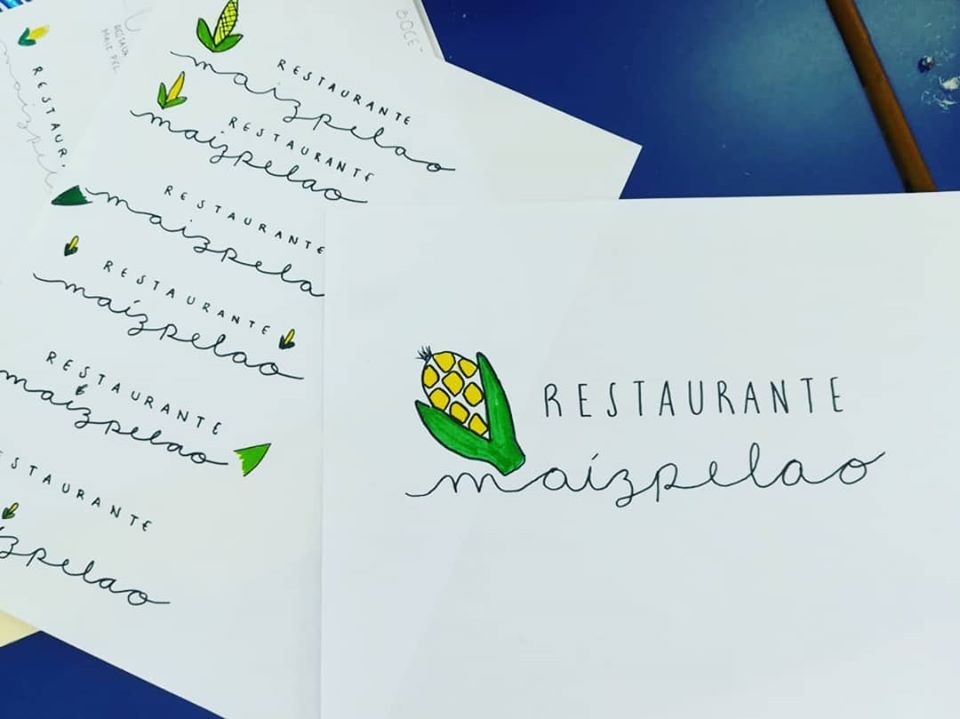 BOCE-
RESTAUR.
RESTAURANTE
maizpelao
RESTAURANTE
maizpelao
RESTAURANTE
maizpela
RESTAURANTE
maízpelao
RESTAURANTE
maizpelao
ESTAURANTE
ízpelao
RESTAURANTE
maízpelao